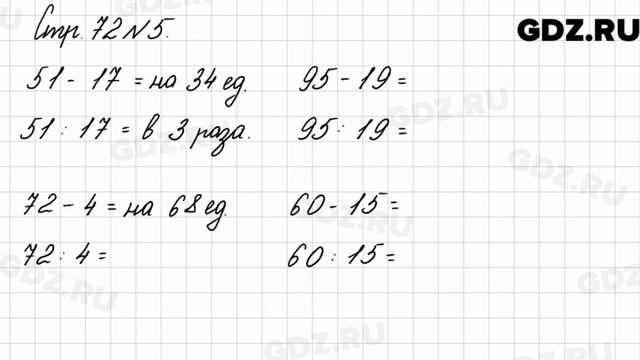 Стр. 72 N 5.
GDZ.RU
51 - 17 = на 34 ед.
95 - 19 =
51 : 17 = в 3 раза.
95 : 19 =
72 - 4 = на 68 ед.
60 - 15 =
72 : 4 =
60 : 15 =
GDZ.RU
GDZ.RU
GDZ.RU
GDZ.RU
GDZ.RU
GDZ.RU
GDZ.RU